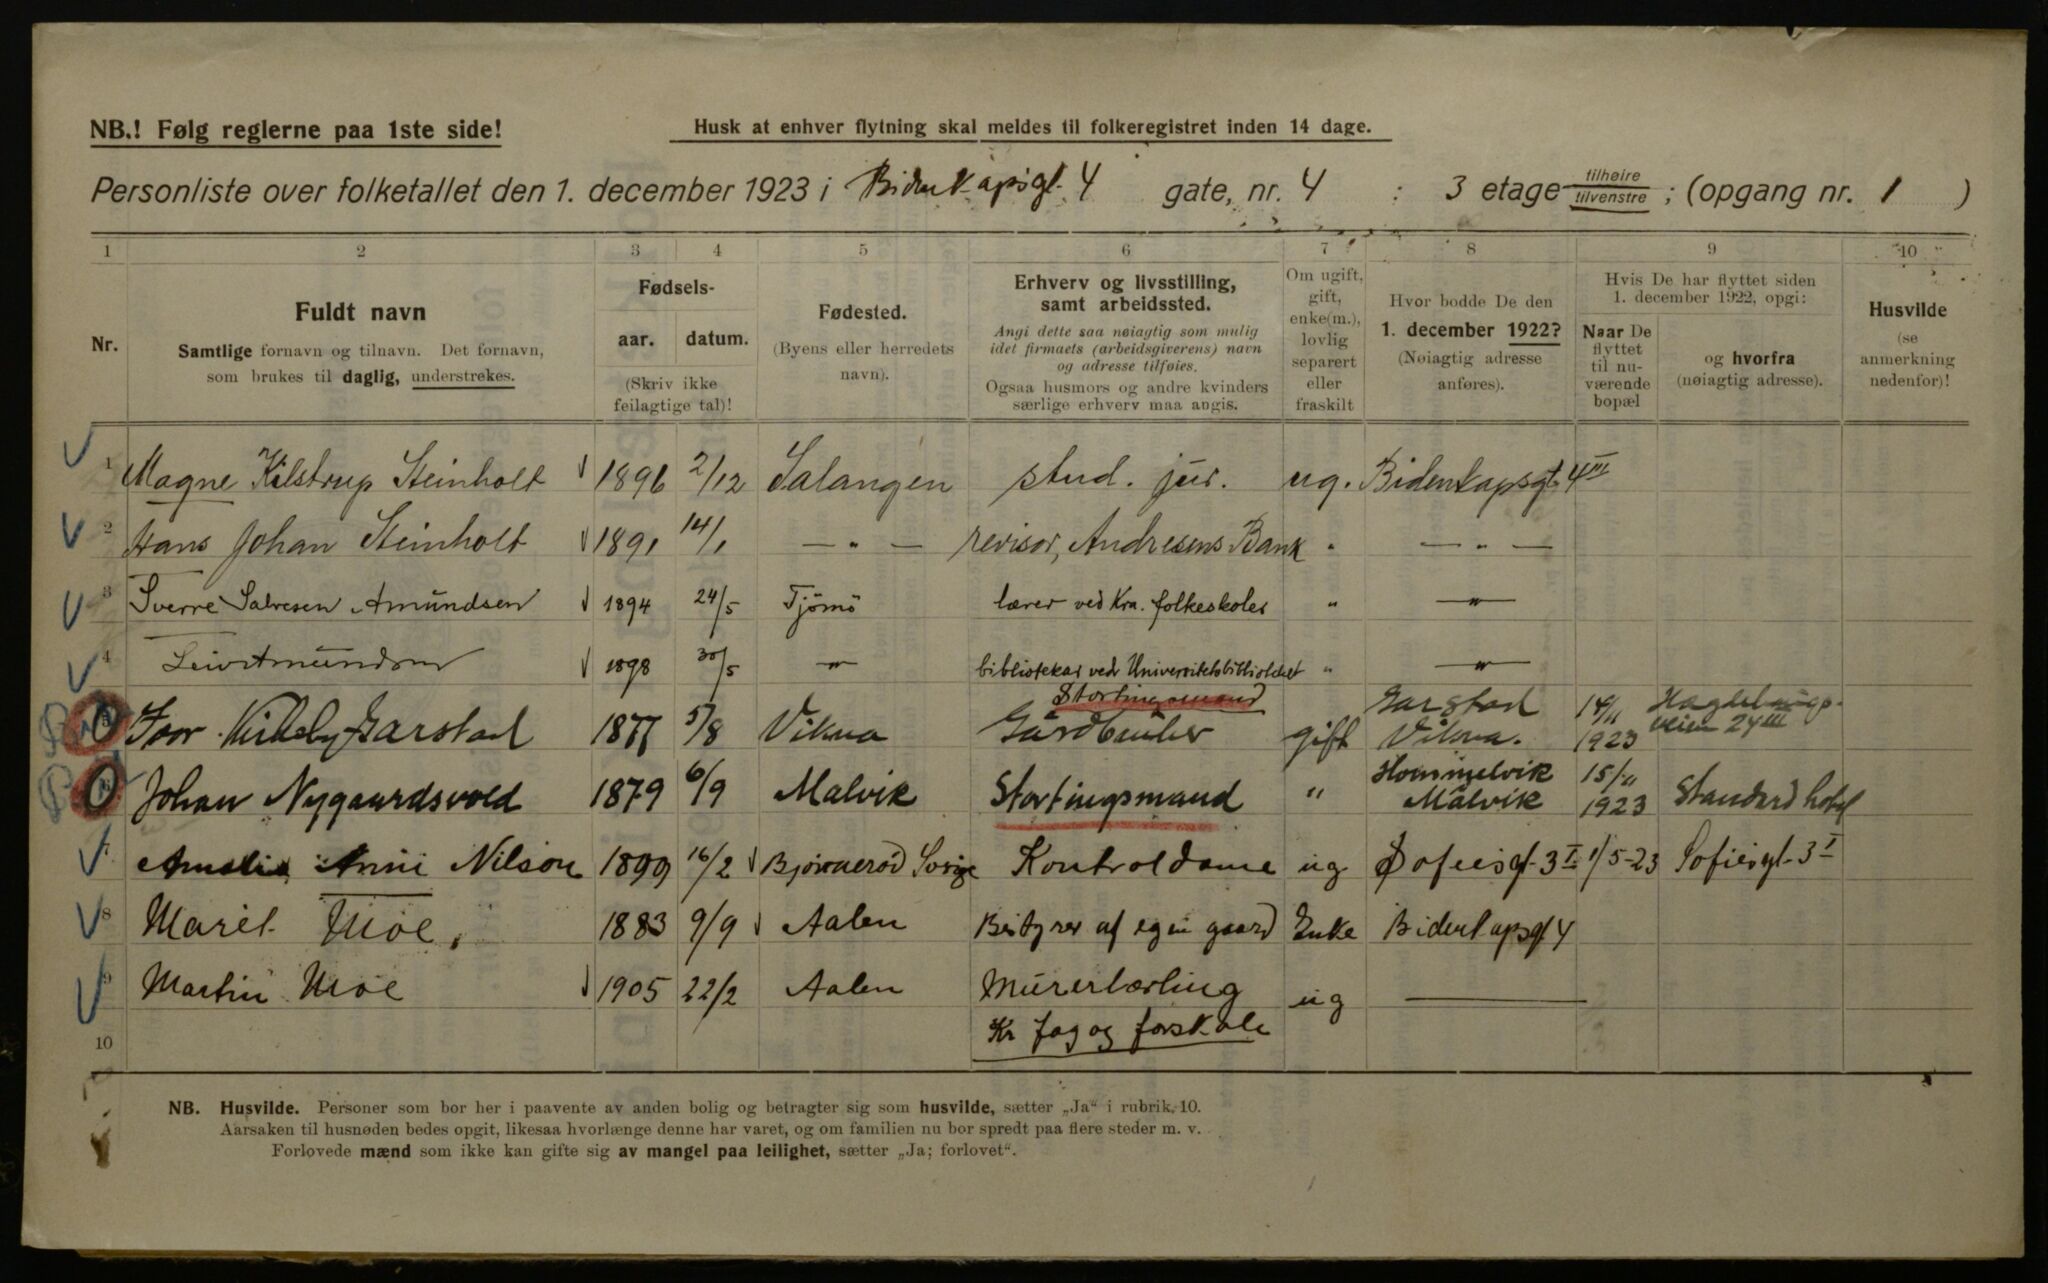 NB.! Følg reglerne paa 1ste side!
Husk at enhver flytning skal meldes til folkeregistret inden 14 dage.
Personliste over folketallet den 1. december 1923 i Bidenkapsgt. 4 gate, nr. 4 : 3 etage tilhøire tilvenstre ; (opgang nr. 1 )
1 2 3 4 5 6 7 8 9 10
Nr.
Fuldt navn
Samtlige fornavn og tilnavn. Det fornavn,
som brukes til daglig, understrekes.
Fødsels-
aar. datum.
(Skriv ikke
feilagtige tal)!
Fødested.
(Byens eller herredets
navn).
Erhverv og livsstilling,
samt arbeidssted.
Angi dette saa nøiagtig som mulig
idet firmaets (arbeidsgiverens) navn
og adresse tilføies.
Ogsaa husmors og andre kvinders
særlige erhverv maa angis.
Om ugift,
gift,
enke(m.),
lovlig
separert
eller
fraskilt
Hvor bodde De den
1. december 1922?
(Nøiagtig adresse
anføres).
Hvis De har flyttet siden
1. december 1922, opgi:
Naar De
flyttet
til nu-
værende
bopæl
og hvorfra
(nøiagtig adresse).
Husvilde
(se
anmerkning
nedenfor)!
1 Magne Kilstrup Steinholt 1896 2/12 Salangen stud. jur. ug. Bidenkapsgt. 4 III
2 Hans Johan Steinholt 1891 14/1 — „ — revisor, Andresens Bank " — „ —
3 Sverre Salvesen Amundsen 1894 24/5 Tjömö lærer ved Kra. folkeskoler " — " —
4 Leiv Amundsen 1898 30/5 — " — bibliotekar ved Universitetsbiblioteket " — " —
Stortingsmand
5 Ivar Kirkeby-Garstad 1877 5/8 Vikna Gårdbruker gift Garstad Vikna. 14/11 1923 Hagleborgsveien 24 III
6 Johan Nygaardsvold 1879 6/9 Malvik Stortingsmand " Hommelvik Malvik 15/11 1923 Standard hotel
7 Amalia Anni Nilson 1899 16/2 Bjørnerød Sverige Kontroldame ug Sofiesgt. 3 I 1/5-23 Sofiesgt. 3 I
8 Marit Moe. 1883 9/9 Aalen Bestyrer af egen gaard Enke Bidenkapsgt 4
9 Martin Moe 1905 22/2 Aalen Murerlærling ug ———
10 Kr fag og forskole
NB. Husvilde. Personer som bor her i paavente av anden bolig og betragter sig som husvilde, sætter „Ja“ i rubrik 10.
Aarsaken til husnøden bedes opgit, likesaa hvorlænge denne har varet, og om familien nu bor spredt paa flere steder m. v.
Forlovede mænd som ikke kan gifte sig av mangel paa leilighet, sætter „Ja; forlovet“.